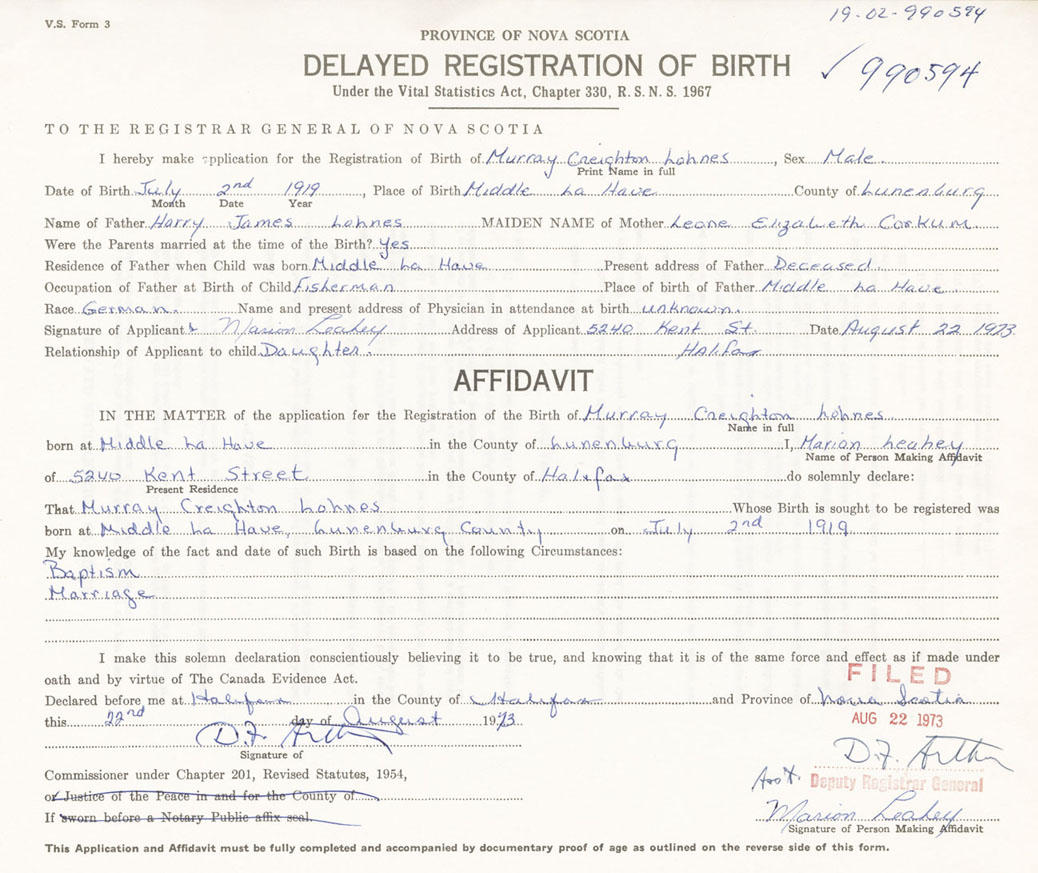 V.S. Form 3
19-02-990594
PROVINCE OF NOVA SCOTIA
DELAYED REGISTRATION OF BIRTH
✓ 990594
Under the Vital Statistics Act, Chapter 330, R. S. N. S. 1967
TO THE REGISTRAR GENERAL OF NOVA SCOTIA
I hereby make application for the Registration of Birth of Murray Creighton Lohnes, Sex Male
Print Name in full
Date of Birth July 2nd 1919, Place of Birth Middle La Have County of Lunenburg
Month Date Year
Name of Father Harry James Lohnes MAIDEN NAME of Mother Leone Elizabeth Corkum
Were the Parents married at the time of the Birth? Yes
Residence of Father when Child was born Middle La Have Present address of Father Deceased.
Occupation of Father at Birth of Child Fisherman Place of birth of Father Middle La Have
Race German. Name and present address of Physician in attendance at birth unknown.
Signature of Applicant Marion Leahey Address of Applicant 5240 Kent St. Date August 22 1973
Relationship of Applicant to child Daughter. Halifax
AFFIDAVIT
IN THE MATTER of the application for the Registration of the Birth of Murray Creighton Lohnes
Name in full
born at Middle La Have in the County of Lunenburg I, Marion Leahey
Name of Person Making Affidavit
of 5240 Kent Street in the County of Halifax do solemnly declare:
Present Residence
That Murray Creighton Lohnes Whose Birth is sought to be registered was
born at Middle La Have, Lunenburg County on July 2nd 1919
My knowledge of the fact and date of such Birth is based on the following Circumstances:
Baptism
Marriage
I make this solemn declaration conscientiously believing it to be true, and knowing that it is of the same force and effect as if made under
oath and by virtue of The Canada Evidence Act.
FILED
Declared before me at Halifax in the County of Halifax and Province of Nova Scotia
this 22nd day of August 1973
AUG 22 1973
D.F. Arthur
Signature of
D.F. Arthur
Commissioner under Chapter 201, Revised Statutes, 1954,
Ass't. Deputy Registrar General
or Justice of the Peace in and for the County of
If sworn before a Notary Public affix seal.
Marion Leahey
Signature of Person Making Affidavit
This Application and Affidavit must be fully completed and accompanied by documentary proof of age as outlined on the reverse side of this form.